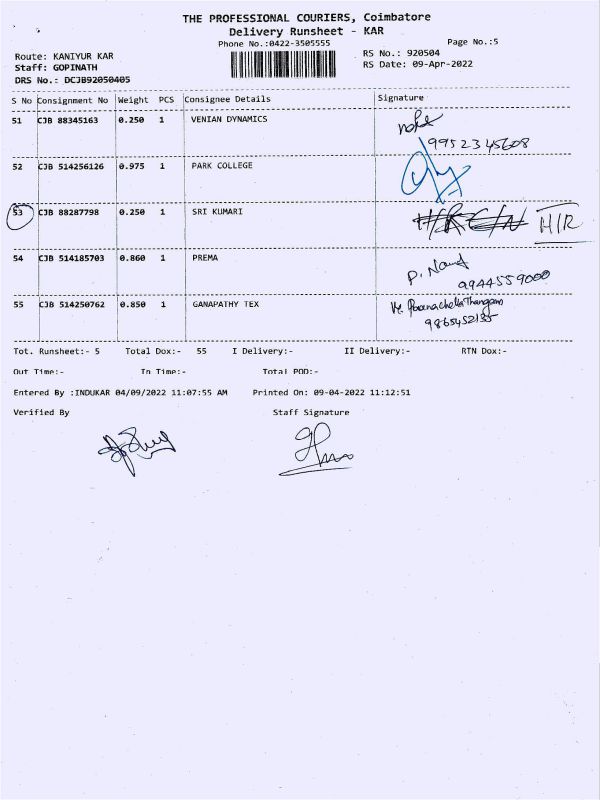 THE PROFESSIONAL COURIERS, Coimbatore
Delivery Runsheet - KAR
Phone No.:0422-3505555
Page No.:5
Route: KANIYUR KAR
RS No.: 920504
Staff: GOPINATH
RS Date: 09-Apr-2022
DRS No.: DCJB92050405
S No Consignment No Weight PCS Consignee Details Signature
51 CJB 88345163 0.250 1 VENIAN DYNAMICS
9952345608
52 CJB 514256126 0.975 1 PARK COLLEGE
53 CJB 88287798 0.250 1 SRI KUMARI H/R
54 CJB 514185703 0.860 1 PREMA
P. Nand
9944559000
55 CJB 514250762 0.850 1 GANAPATHY TEX
9865452135
Tot. Runsheet:- 5 Total Dox:- 55 I Delivery:- II Delivery:- RTN Dox:-
Out Time:- In Time:- Total POD:-
Entered By :INDUKAR 04/09/2022 11:07:55 AM Printed On: 09-04-2022 11:12:51
Verified By Staff Signature